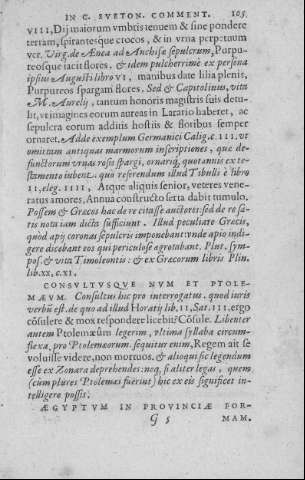 IN C. SVETON. COMMENT. 105
VIII, Dij maiorum vmbris tenuem & sine pondere
terram, spirantesque crocos, & in vrna perpetuum
ver. Virg. de Ænea ad Anchisæ sepulcrum, Purpu-
reosque iacit flores. & idem pulcherrimè ex persona
ipsius Augusti libro VI, manibus date lilia plenis,
Purpureos spargam flores. Sed & Capitolinus, vita
M. Aurelij, tantum honoris magistris suis detu-
lit, vt imagines eorum aureas in Larario haberet, ac
sepulcra eorum additis hostiis & floribus semper
ornaret. Adde exemplum Germanici Calig. c. III. vt
omittam antiquas marmorum inscriptiones, quæ de-
functorum vrnas rosis spargi, ornariq, quotannis ex te-
stamento iubent. quo referendum illud Tibulli è libro
II, eleg. IIII, Atque aliquis senior, veteres vene-
ratus amores, Annua constructo serta dabit tumulo.
Possem & Græcos hac de re citasse auctores: sed de re sa-
tis nota iam dicta sufficiunt. Illud peculiare Græcis,
quòd apij coronas sepulcris imponebant: vnde apio indi-
gere dicebant eos qui periculose ægrotabant. Plut. sym-
pos. & vita Timoleontis: & ex Græcorum libris Plin.
lib. xx, c. XI.
CONSVLTVSQVE NVM ET PTOLE-
MÆVM. Consultus hîc pro interrogatus. quod iuris
verbū est. de quo ad illud Horatij lib. II, Sat. III. ergo
cōsulere & mox respondere licebit? Cōsule. Libenter
autem Ptolemæûm legerim, vltima syllaba circum-
flexa, pro Ptolemæorum. sequitur enim, Regem ait se
voluisse videre, non mortuos. & alioqui sic legendum
esse ex Zonara deprehendes: neq, si aliter legas, quem
(cùm plures Ptolemæi fuerint) hîc ex iis significet in-
telligere possis.
ÆGYPTVM IN PROVINCIÆ FOR-
G 5 MAM.